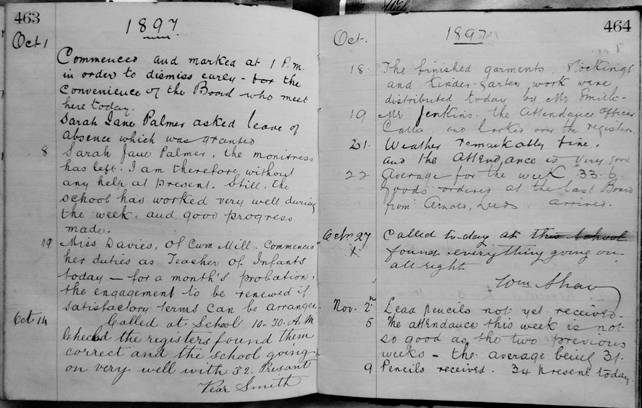 463
1897
Oct 1
Commenced and marked at 1 P.m.
in order to dismiss early - for the
convenience of the Board who meet
here today.
Sarah Jane Palmer asked leave of
absence which was granted
8 Sarah Jane Palmer, the monitress
has left. I am therefore without
any help at present. Still, the
school has worked very well during
the week, and good progress
made.
Miss Davies, of Cwm Mill. Commenced
her duties as Teacher of Infants
today - for a month's probation,
the engagement to be renewed if
satisfactory terms can be arranged
Oct 14 Called at School 10-30 A.M
Checked the registers found them
correct and the school going
on very well with 32. Present
Smith
464
1897
Oct.
18 The finished garments, Stockings
and Kinder-garten work were
distributed today by Mr Smith.
19 Mr Jenkins, the Attendance Officer
Called and looked over the registers
21 Weather remarkably fine,
and the Attendance is very good
22 Average for the week, 33.6
Goods ordered at the last Board
from Arnold, Leeds arrived.
27 Called to-day at this School
found everything going on
all right
Wm Shaw
Nov. 2nd Lead pencils not yet received.
5 The attendance this week is not
so good as the two previous
weeks - the average being 31.
9 Pencils received. 34 present today